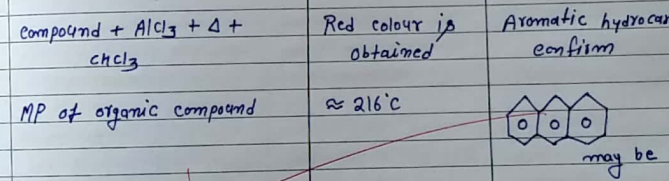 Compound + AlCl3 + Δ +
CHCl3
Red colour is
obtained
Aromatic hydrocar
confirm
MP of organic compound
≈ 216°C
may be